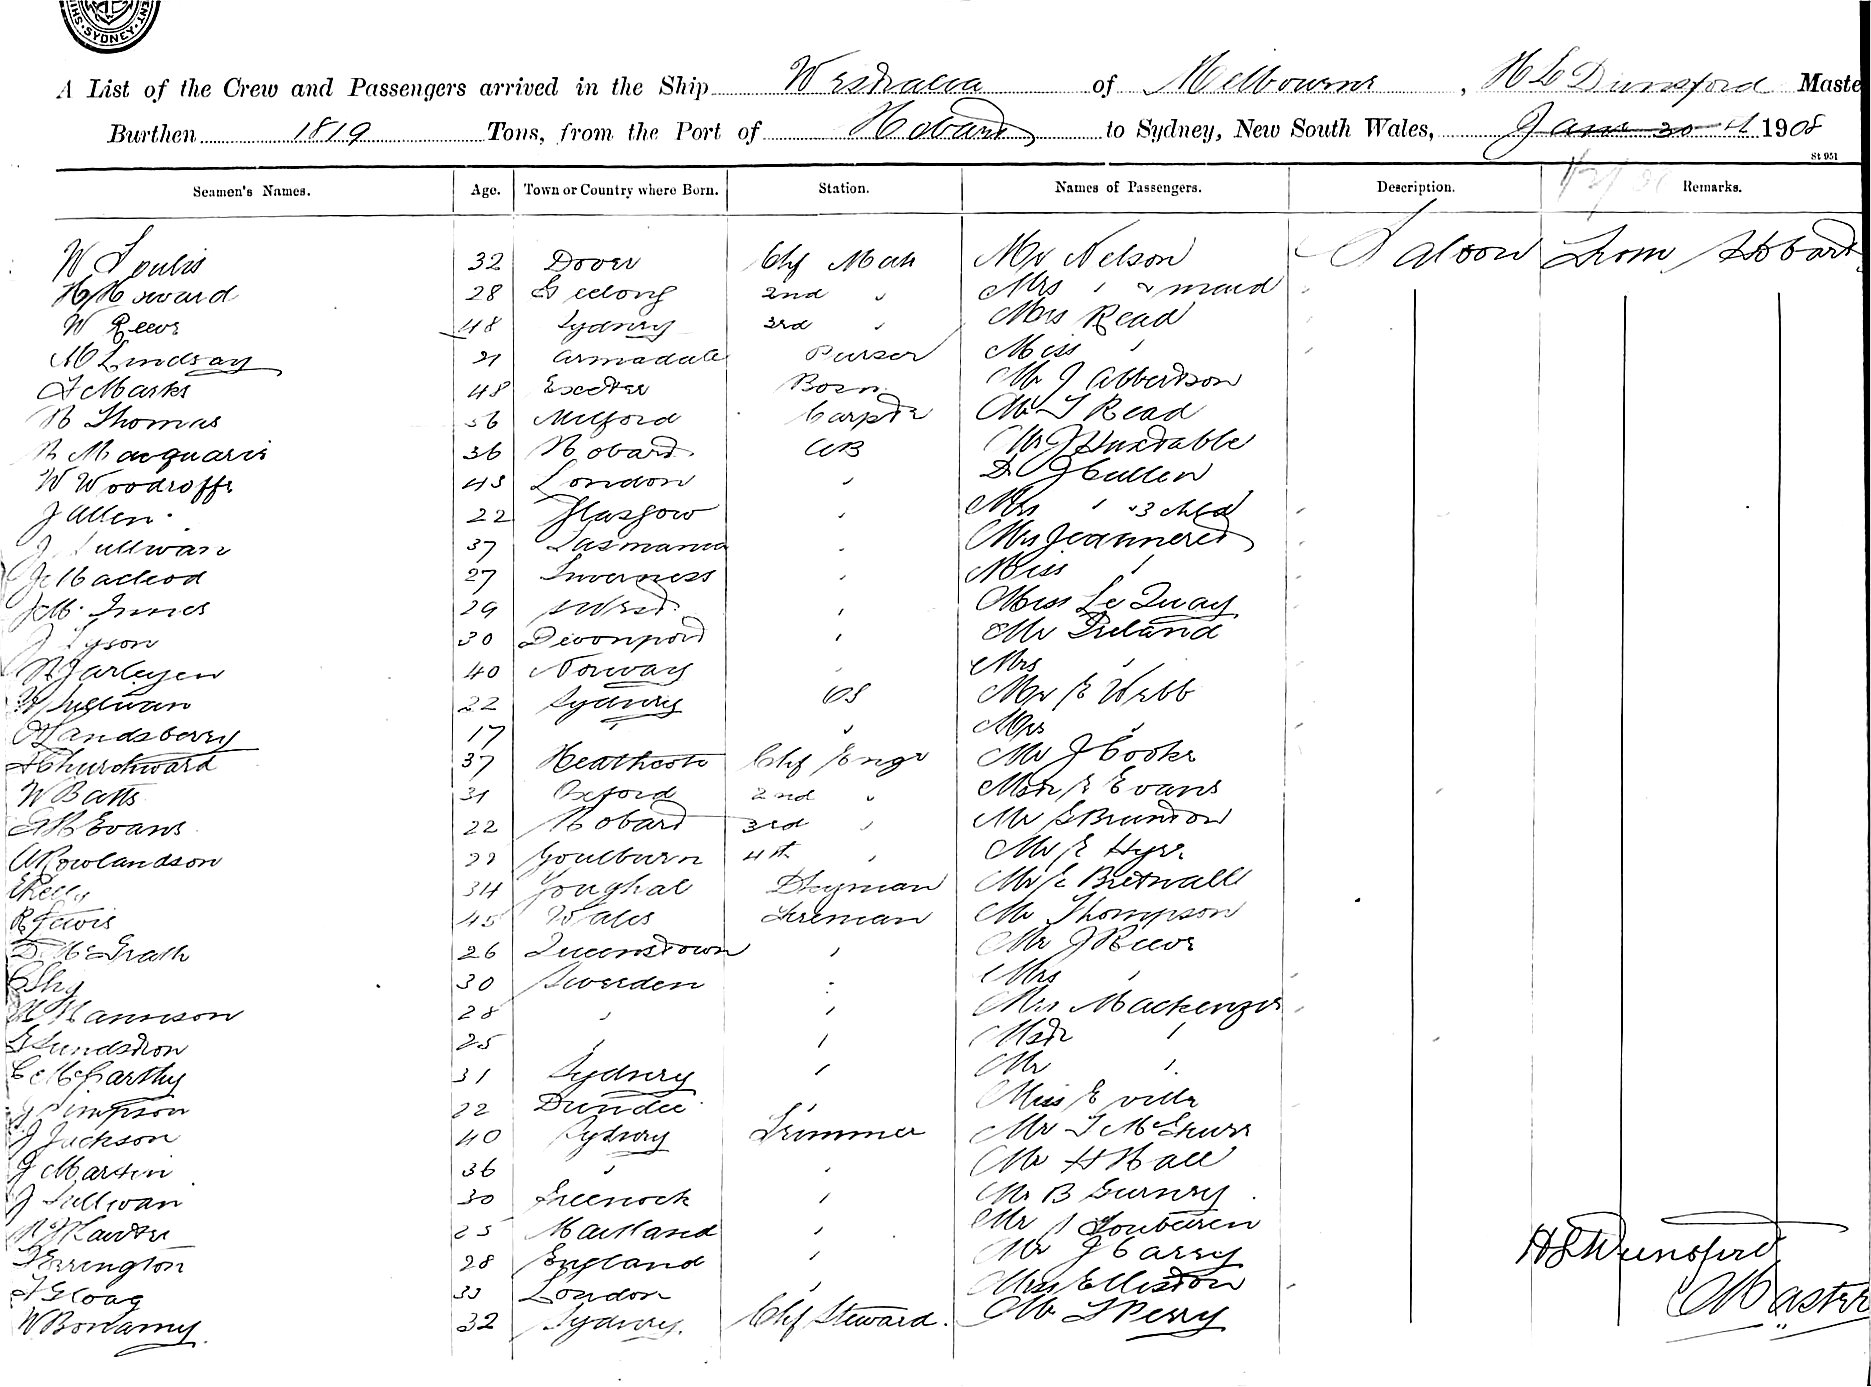 SYDNEY
A List of the Crew and Passengers arrived in the Ship Westralia of Melbourne, H L Dunsford Maste
Burthen 1819 Tons, from the Port of Hobart to Sydney, New South Wales, Jan 30th 1908
St 951
Seamen's Names. Age. Town or Country where Born. Station. Names of Passengers. Description. Remarks.
W Soulis 32 Dover Chf Mate Mr Nelson Saloon From Hobart
H Howard 28 Geelong 2nd " Mrs " & maid
W Reeve 48 Sydney 3rd " Mrs Read
M Lindsay 21 Armadale Purser Miss "
Marks 48 Exeter Bosn Mr J Abbertson
R Thomas 56 Milford Carptr Mr T Read
R Macquarie 36 Hobart AB Mr J Huxtable
W Woodroffe 43 London " Dr J Cullen
J Allen 22 Glasgow " Mrs " & 3 chld
J Sullivan 37 Tasmania " Mrs Jeanneret
J Macleod 27 Inverness " Miss "
J McInnes 29 " Miss Le Quay
J Tyson 30 Devonport " Mr Ireland
40 Norway " Mrs "
W Sullivan 22 Sydney OS Mr E Webb
Landsberry 17 " " Mrs "
Churchward 37 Heathcote Chf Engr Mr J Cooke
W Batts 31 Oxford 2nd " Mstr E Evans
A H Evans 22 Hobart 3rd " Mr S Brunton
A Rowlandson 22 Goulburn 4th " Mr E Hyer
Kelly 34 Youghal Dkyman Mr E Bretnall
R Lewis 45 Wales Fireman Mr Thompson
D McGrath 26 Queenstown " Mr J Reeve
C Shy 30 Sweden " Mrs "
28 " " Mrs Mackenzie
Lundstron 25 " " Mstr "
C McCarthy 31 Sydney " Mr "
J Simpson 22 Dundee " Miss E Ville
J Jackson 40 Sydney Trimmer Mr T McGhurr
J Martin 36 " " Mr H Hall
J Sullivan 30 Greenock " Mr B Gurney
25 Maitland " Mr J
Errington 28 England " Mr J Carey H L Dunsford
T Gloag 33 London " Mrs Elliston Master
W Bonamy 32 Sydney Chf Steward Mr L Perry